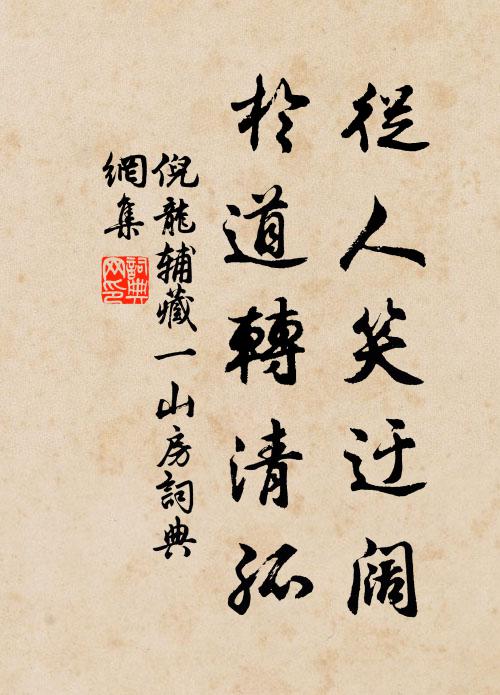 從人笑迂阔
於道轉清孤
倪龍辅藏一山房詞典
網集
詞典
网印